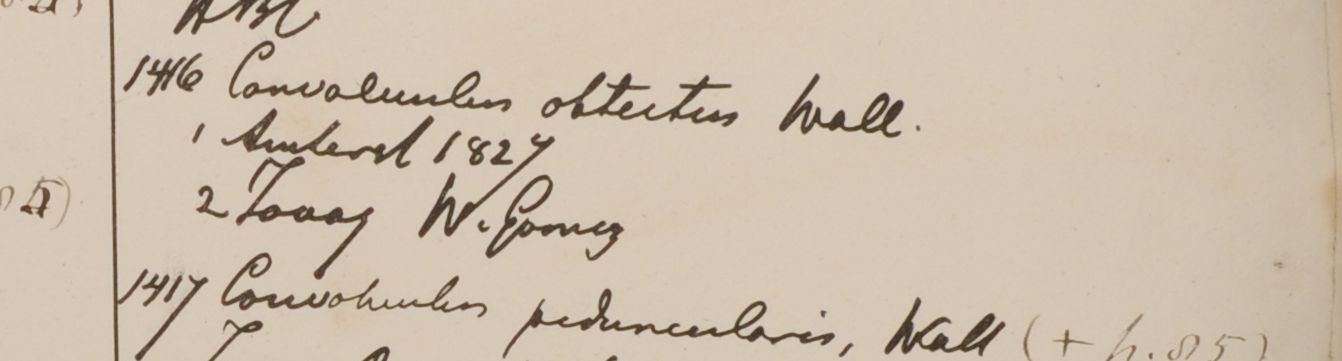 HBC
1416 Convolvulus obtectus Wall.
1 Amherst 1827
2 Tavoy W. Gomez
1417 Convolvulus peduncularis, Wall (+ p. 85)